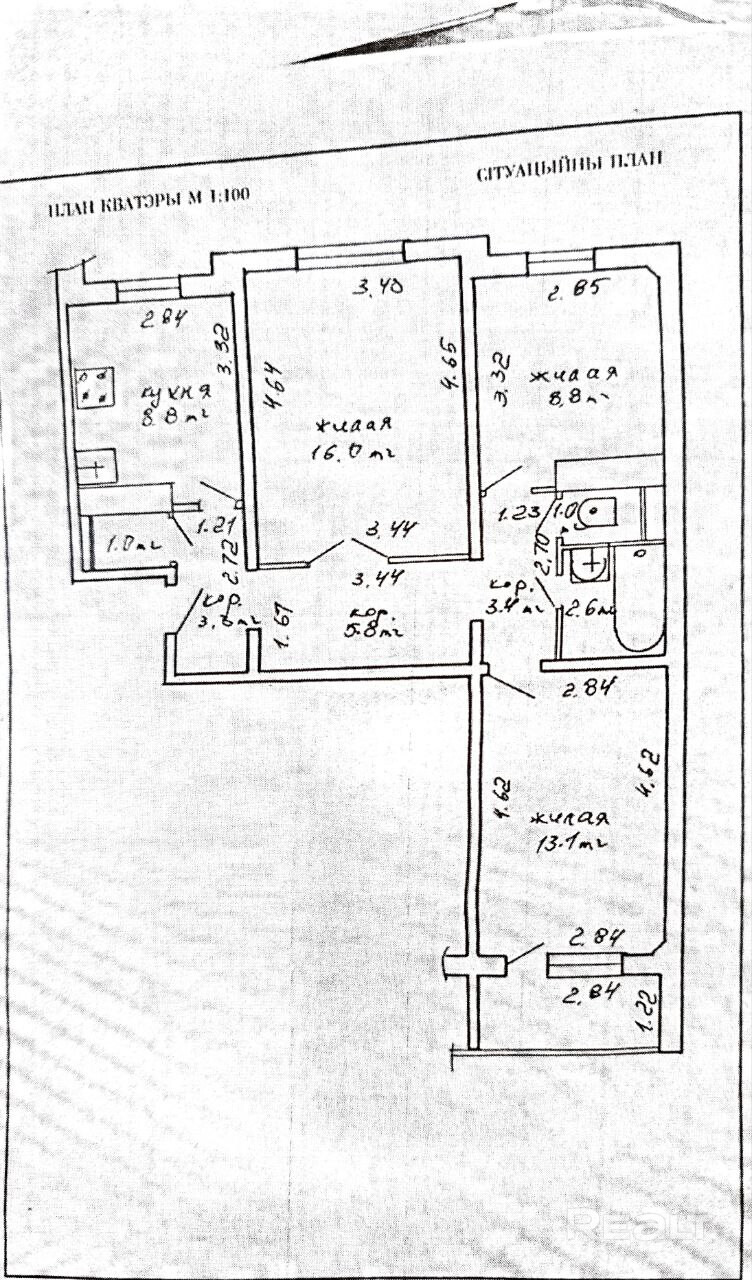 ПЛАН КВАТЭРЫ М 1:100
СІТУАЦЫЙНЫ ПЛАН
2.84
3.40
2.85
3.32
4.64
4.65
3.32
кухня
8.8 m²
жилая
16.0 m²
жилая
8,8 m²
1.21
3.44
1.23
1.0
1.0 m²
2.72
3.44
2.70
кор.
1.67
кор.
5.8 m²
кор.
3.4 m²
2.6 m²
2.84
4.62
4.62
жилая
13.1 m²
2.84
2.84
1.22